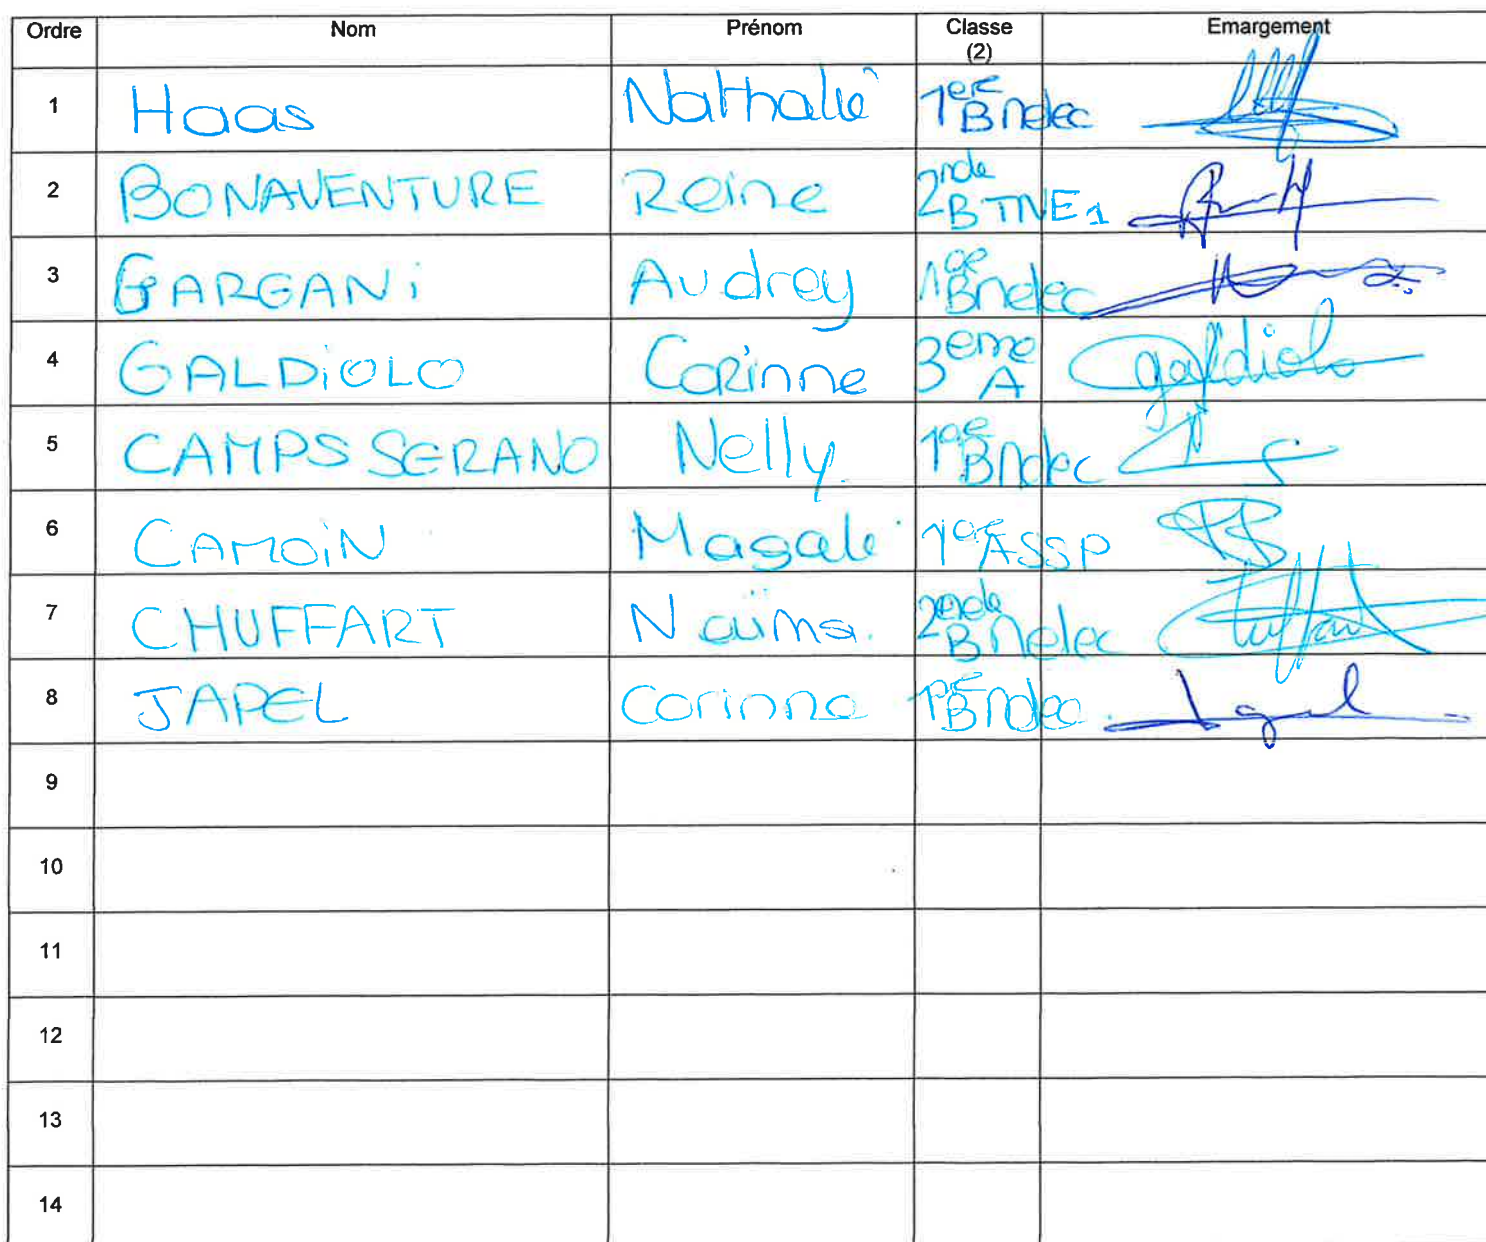 Ordre Nom Prénom Classe (2) Emargement
1 Haas Nathalie 1ere B Melec
2 BONAVENTURE Reine 2nde B TNE1
3 GARGANi Audrey 1ere B Melec
4 GALDiOLO Corinne 3eme A galdiolo
5 CAMPS SERANO Nelly 1ere B Melec
6 CAMOiN Magali 1ere ASSP
7 CHUFFART Naïma 2nde B Melec Chuffart
8 JAPEL Corinne 1ere B Melec
9
10
11
12
13
14